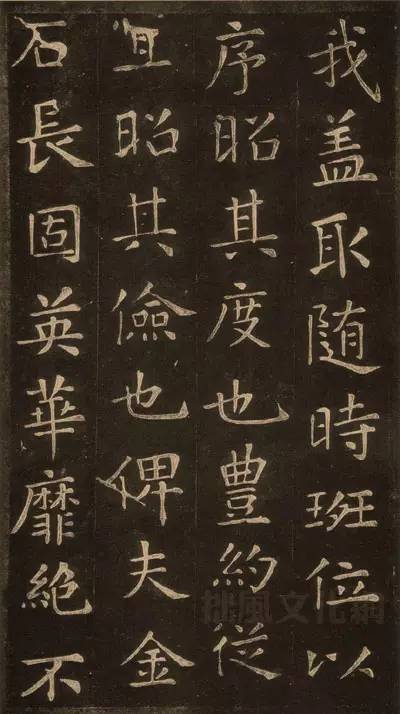 我盖取随時班位以
序昭其度也豊約従
宜昭其儉也俾夫金
石長固英華靡絶不
拙風文化網